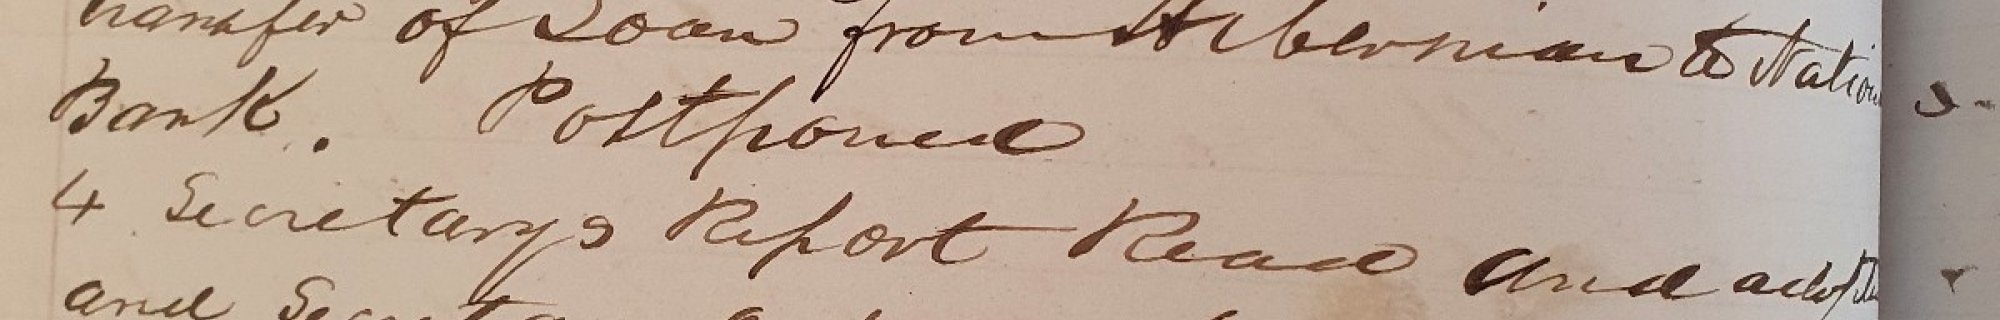 transfer of Loan from Hibernian to Nation
Bank. Postponed
4 Secretarys Report Read and adopted
and